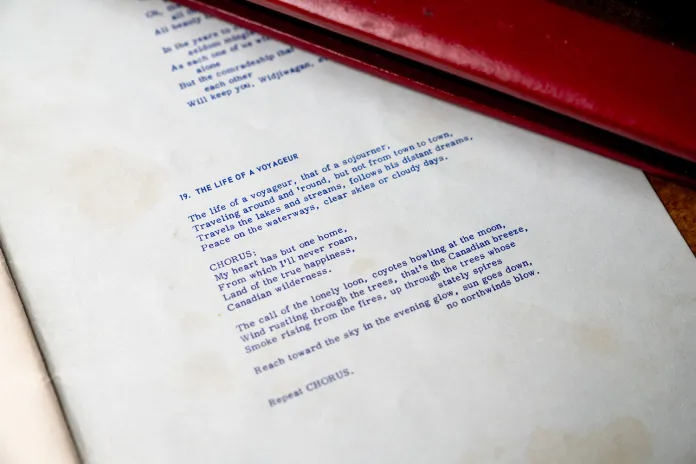 Oh,
all
All beauty
In the years to
seldom mingl
As each one of us wi
alone
But the comradeship that
each other
Will keep you, Widjiwagan,
19. THE LIFE OF A VOYAGEUR
The life of a voyageur, that of a sojourner,
Traveling around and 'round, but not from town to town,
Travels the lakes and streams, follows his distant dreams,
Peace on the waterways, clear skies or cloudy days.
CHORUS:
My heart has but one home,
From which I'll never roam,
Land of the true happiness,
Canadian wilderness.
The call of the lonely loon, coyotes howling at the moon,
Wind rustling through the trees, that's the Canadian breeze,
Smoke rising from the fires, up through the trees whose
stately spires
Reach toward the sky in the evening glow, sun goes down,
no northwinds blow.
Repeat CHORUS.